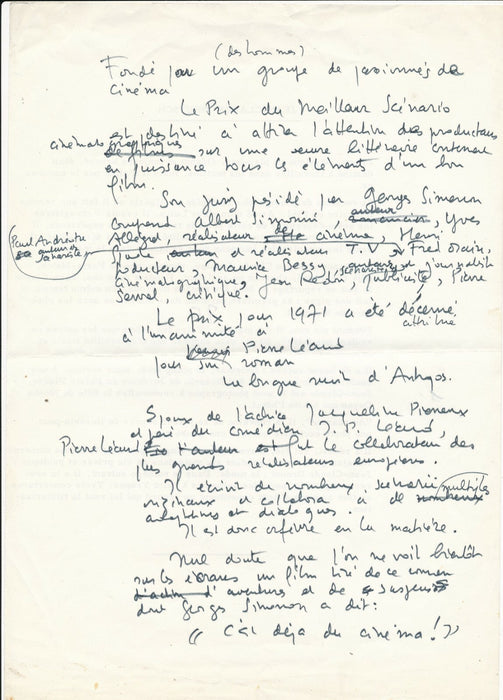 (des hommes)
Fondé par un groupe de passionnés de
cinéma
Le Prix du Meilleur Scénario
est destiné à attirer l'attention des producteurs
cinématographiques
de films sur une œuvre littéraire contenant
en puissance tous les éléments d'un bon
film.
Son jury présidé par Georges Simenon
comprend Albert Simonin auteur, Yves
Allégret, réalisateur de cinéma, Henri
Paul Andréota
scénariste
et réalisateur T.V, Fred Orain,
producteur, Maurice Bessy auteur et journaliste
cinématographique, Jean Redon, scénariste, publiciste, Pierre
Serval, critique.
Le prix pour 1971 a été décerné
attribué
à l'unanimité à
Pierre Léaud
pour son roman
La longue nuit d'Antigos.
Epoux de l'actrice Jacqueline Pierreux
et père du comédien J.P. Léaud,
Pierre Léaud l'auteur est fut le collaborateur des
plus grands réalisateurs européens.
Il écrivit de nombreux scénarii
originaux et collabora à de multiples
nombreux
adaptations et dialogues.
Il est donc orfèvre en la matière.
Nul doute que l'on ne voit bientôt
sur les écrans un film tiré de ce roman
d'action d'aventures et de suspens
dont Georges Simenon a dit :
« C'est déjà du cinéma ! »